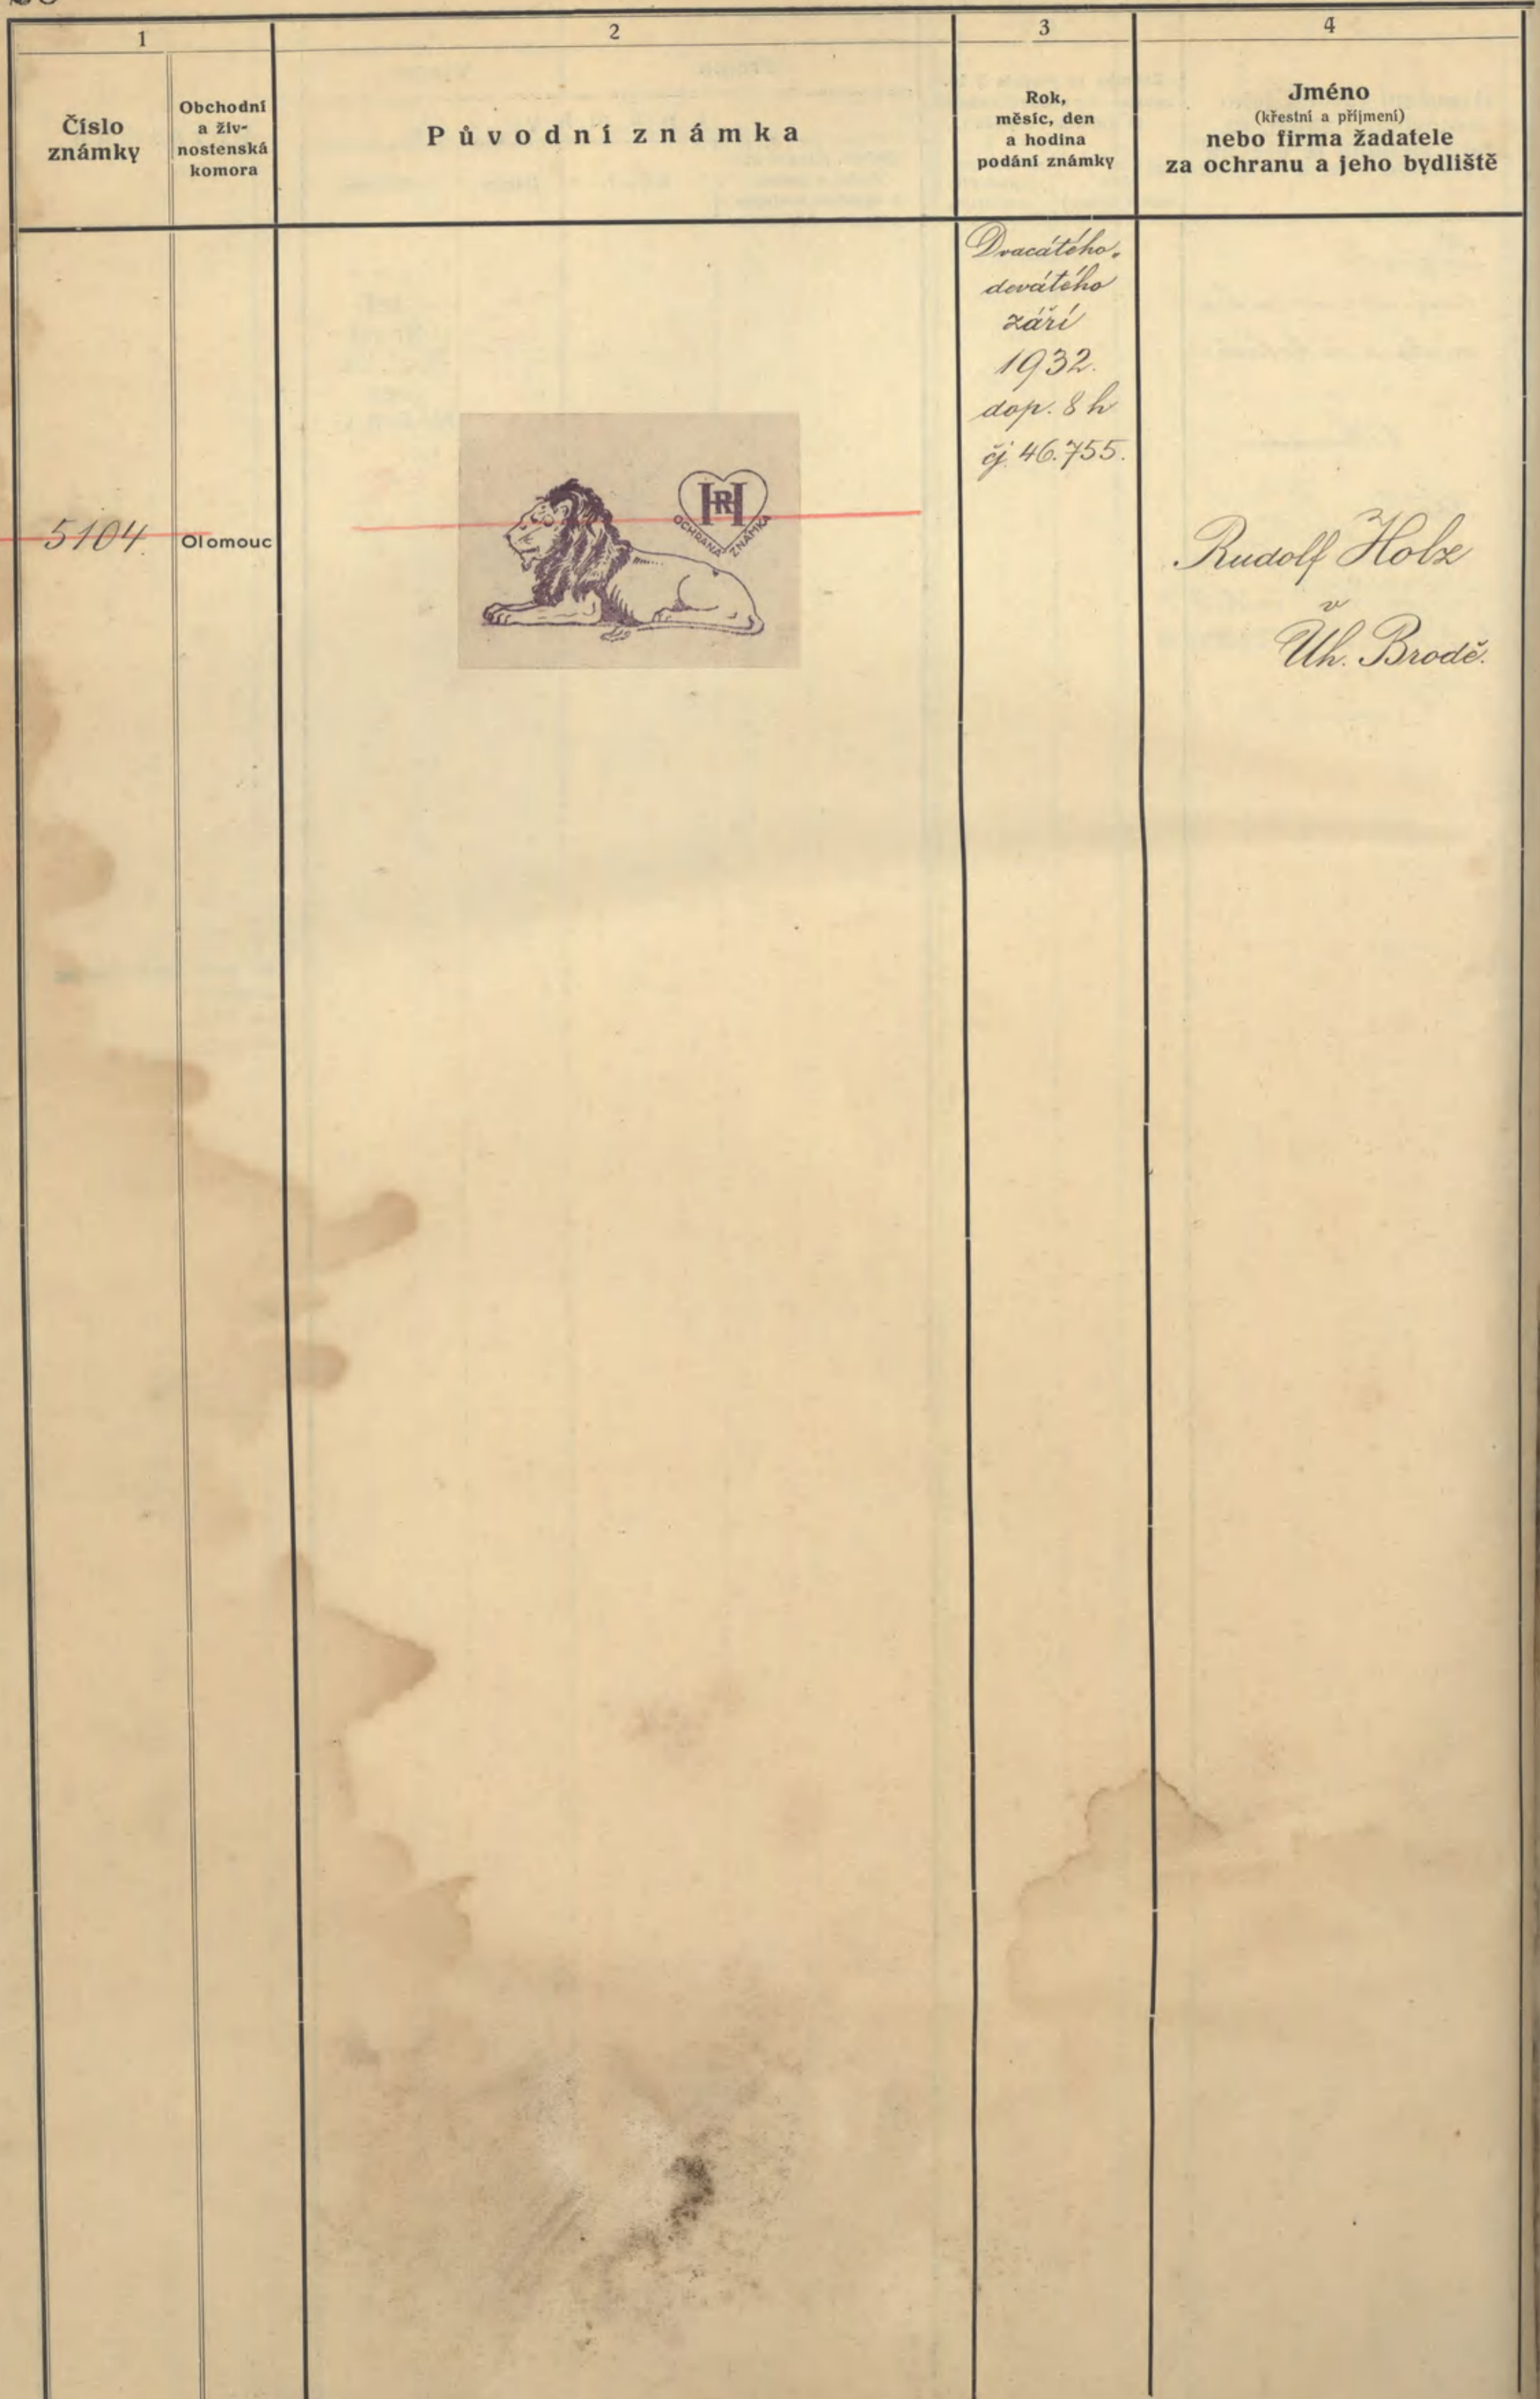 1
2
3
4
Číslo
známky
Obchodní
a živ-
nostenská
komora
Původní známka
Rok,
měsíc, den
a hodina
podání známky
Jméno
(křestní a příjmení)
nebo firma žadatele
za ochranu a jeho bydliště
5104.
Olomouc
HR
OCHRANÁ ZNÁMKA
Dvacátého
devátého
září
1932.
dop. 8 h
čj. 46.755.
Rudolf Holz
v
Uh. Brodě.